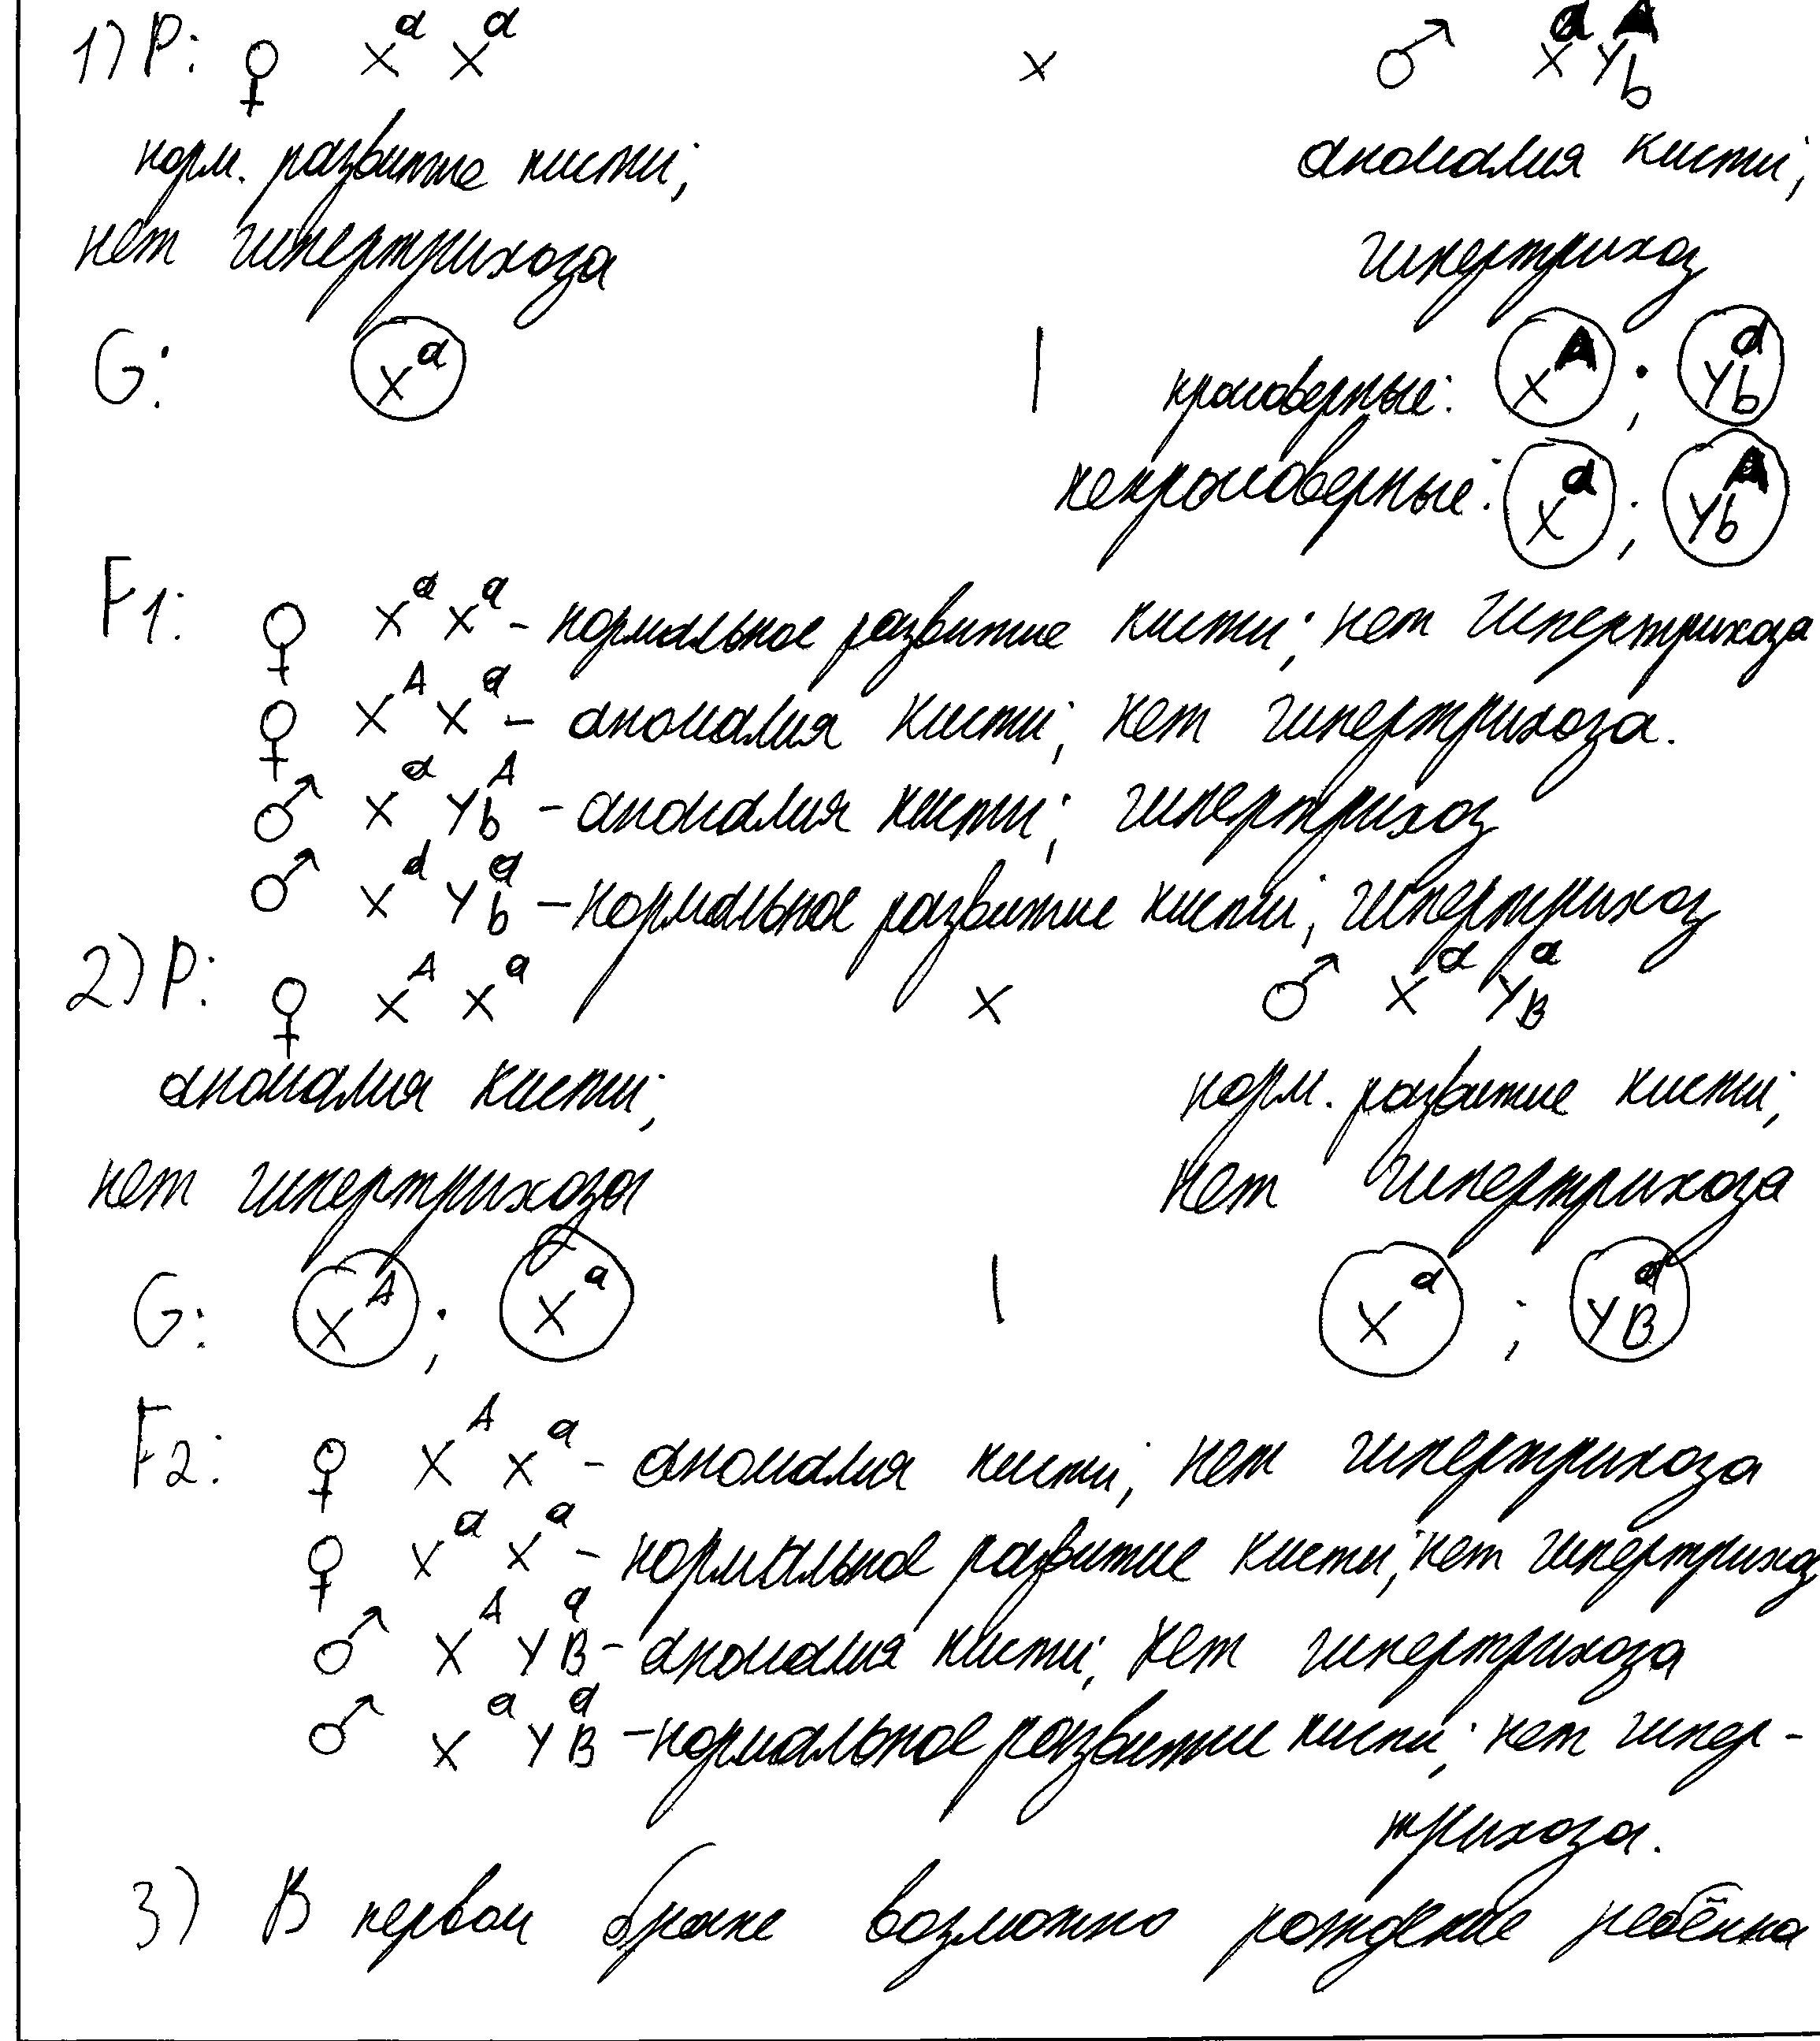 1) P: ♀ XᵃXᵃ × ♂ XᵃYbᴬ
норм. развитие кисти; аномалия кисти;
нет гипертрихоза гипертрихоз
G: Xᵃ | кроссоверные: Xᴬ ; Ybᵃ
некроссоверные: Xᵃ ; Ybᴬ
F1: ♀ XᵃXᵃ - нормальное развитие кисти; нет гипертрихоза
♀ XᴬXᵃ - аномалия кисти; нет гипертрихоза.
♂ XᵃYbᴬ - аномалия кисти; гипертрихоз
♂ XᵃYbᵃ - нормальное развитие кисти; гипертрихоз
2) P: ♀ XᴬXᵃ × ♂ XᵃYBᵃ
аномалия кисти; норм. развитие кисти;
нет гипертрихоза нет гипертрихоза
G: Xᴬ ; Xᵃ | Xᵃ ; YBᵃ
F2: ♀ XᴬXᵃ - аномалия кисти; нет гипертрихоза
♀ XᵃXᵃ - нормальное развитие кисти; нет гипертрихоз
♂ XᴬYBᵃ - аномалия кисти; нет гипертрихоза
♂ XᵃYBᵃ - нормальное развитие кисти; нет гипер-
трихоза.
3) В первом браке возможно рождение ребёнка